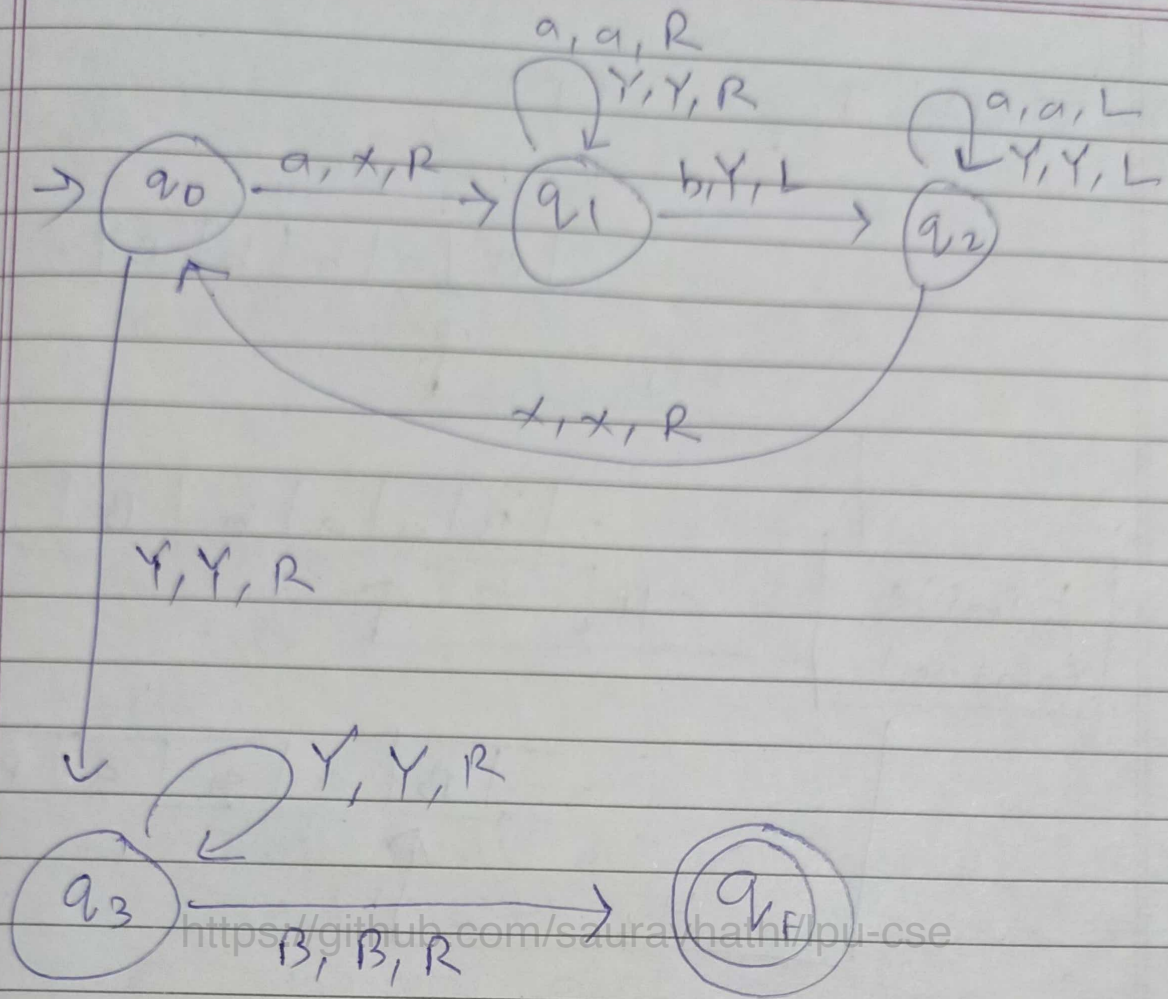 a, a, R
Y, Y, R
a, a, L
Y, Y, L
q0
a, x, R
q1
b, Y, L
q2
x, x, R
Y, Y, R
Y, Y, R
q3
B, B, R
qF
https://github.com/sauravhathi/lpu-cse